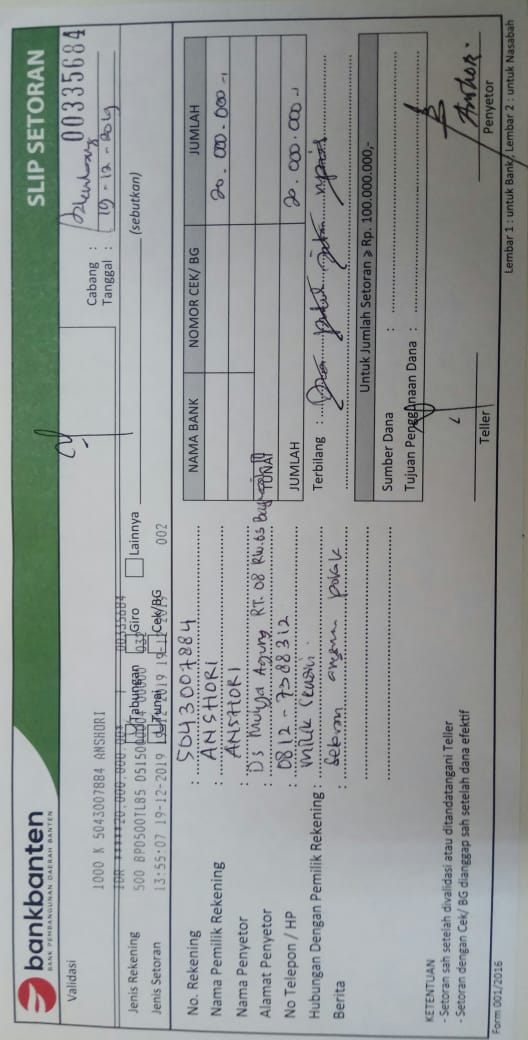 bankbanten
BANK PEMBANGUNAN DAERAH BANTEN
SLIP SETORAN
Validasi
1000 K 5043007884 ANSHORI
IDR *****20.000.000,00
00335684
500 BP0500TL85
19-12-2019
13:55:07 19-12-2019
002
Cabang :
Tanggal : 19-12-2019
00335684
Jenis Rekening
Tabungan
Giro
Lainnya
(sebutkan)
Jenis Setoran
Tunai
Cek/BG
No. Rekening : 5043007884
Nama Pemilik Rekening : ANSHORI
Nama Penyetor : ANSHORI
Alamat Penyetor : Ds Mulya Agung RT. 08 Rw. 63
No Telepon / HP : 0812-7388312
Hubungan Dengan Pemilik Rekening : Milik Sendiri
Berita : Setoran angsuran pokok
NAMA BANK
NOMOR CEK/ BG
JUMLAH
20.000.000,-
TUNAI
JUMLAH
20.000.000,-
Terbilang : Dua puluh juta rupiah
Untuk Jumlah Setoran ≥ Rp. 100.000.000,-
Sumber Dana :
Tujuan Penggunaan Dana :
KETENTUAN
- Setoran sah setelah divalidasi atau ditandatangani Teller
- Setoran dengan Cek/ BG dianggap sah setelah dana efektif
Teller
Anshori
Penyetor
Form 001/2016
Lembar 1 : untuk Bank, Lembar 2 : untuk Nasabah